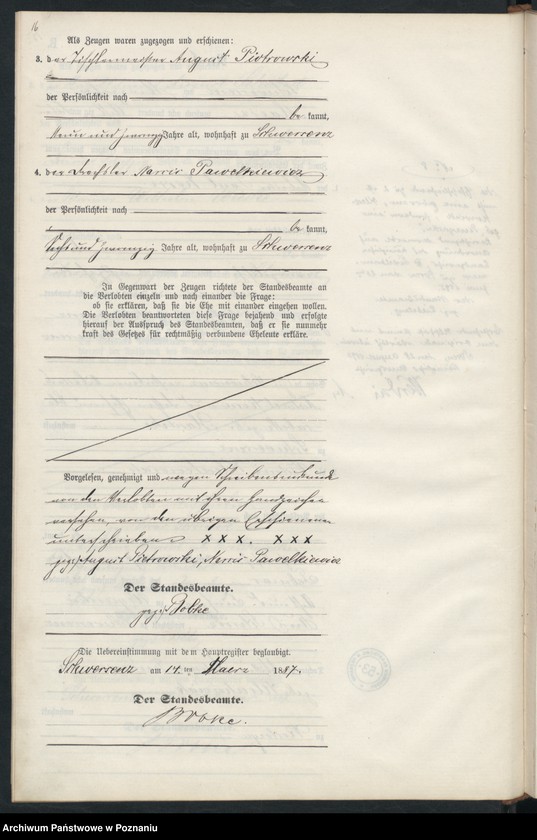 16
Als Zeugen waren zugezogen und erschienen:
3. der Tischlermeister August Piotrowski
der Persönlichkeit nach
be kannt,
neun und zwanzig Jahre alt, wohnhaft zu Schwersenz
4. der Drechsler Narciß Pawelkiewicz
der Persönlichkeit nach
be kannt,
sechs und zwanzig Jahre alt, wohnhaft zu Schwersenz
In Gegenwart der Zeugen richtete der Standesbeamte an
die Verlobten einzeln und nach einander die Frage:
ob sie erklären, daß sie die Ehe mit einander eingehen wollen.
Die Verlobten beantworteten diese Frage bejahend und erfolgte
hierauf der Ausspruch des Standesbeamten, daß er sie nunmehr
kraft des Gesetzes für rechtmäßig verbundene Eheleute erkläre.
Vorgelesen, genehmigt und wegen Schreibensunkunde
von den Verlobten mit ihren Handzeichen
versehen, von den übrigen Erschienenen
unterschrieben. X X X. X X X
gez. August Piotrowski, Narciß Pawelkiewicz
Der Standesbeamte.
gez. Bobke
Die Uebereinstimmung mit dem Hauptregister beglaubigt.
Schwersenz am 14. ten Maerz 1887.
Der Standesbeamte.
Bobke.
Archiwum Państwowe w Poznaniu